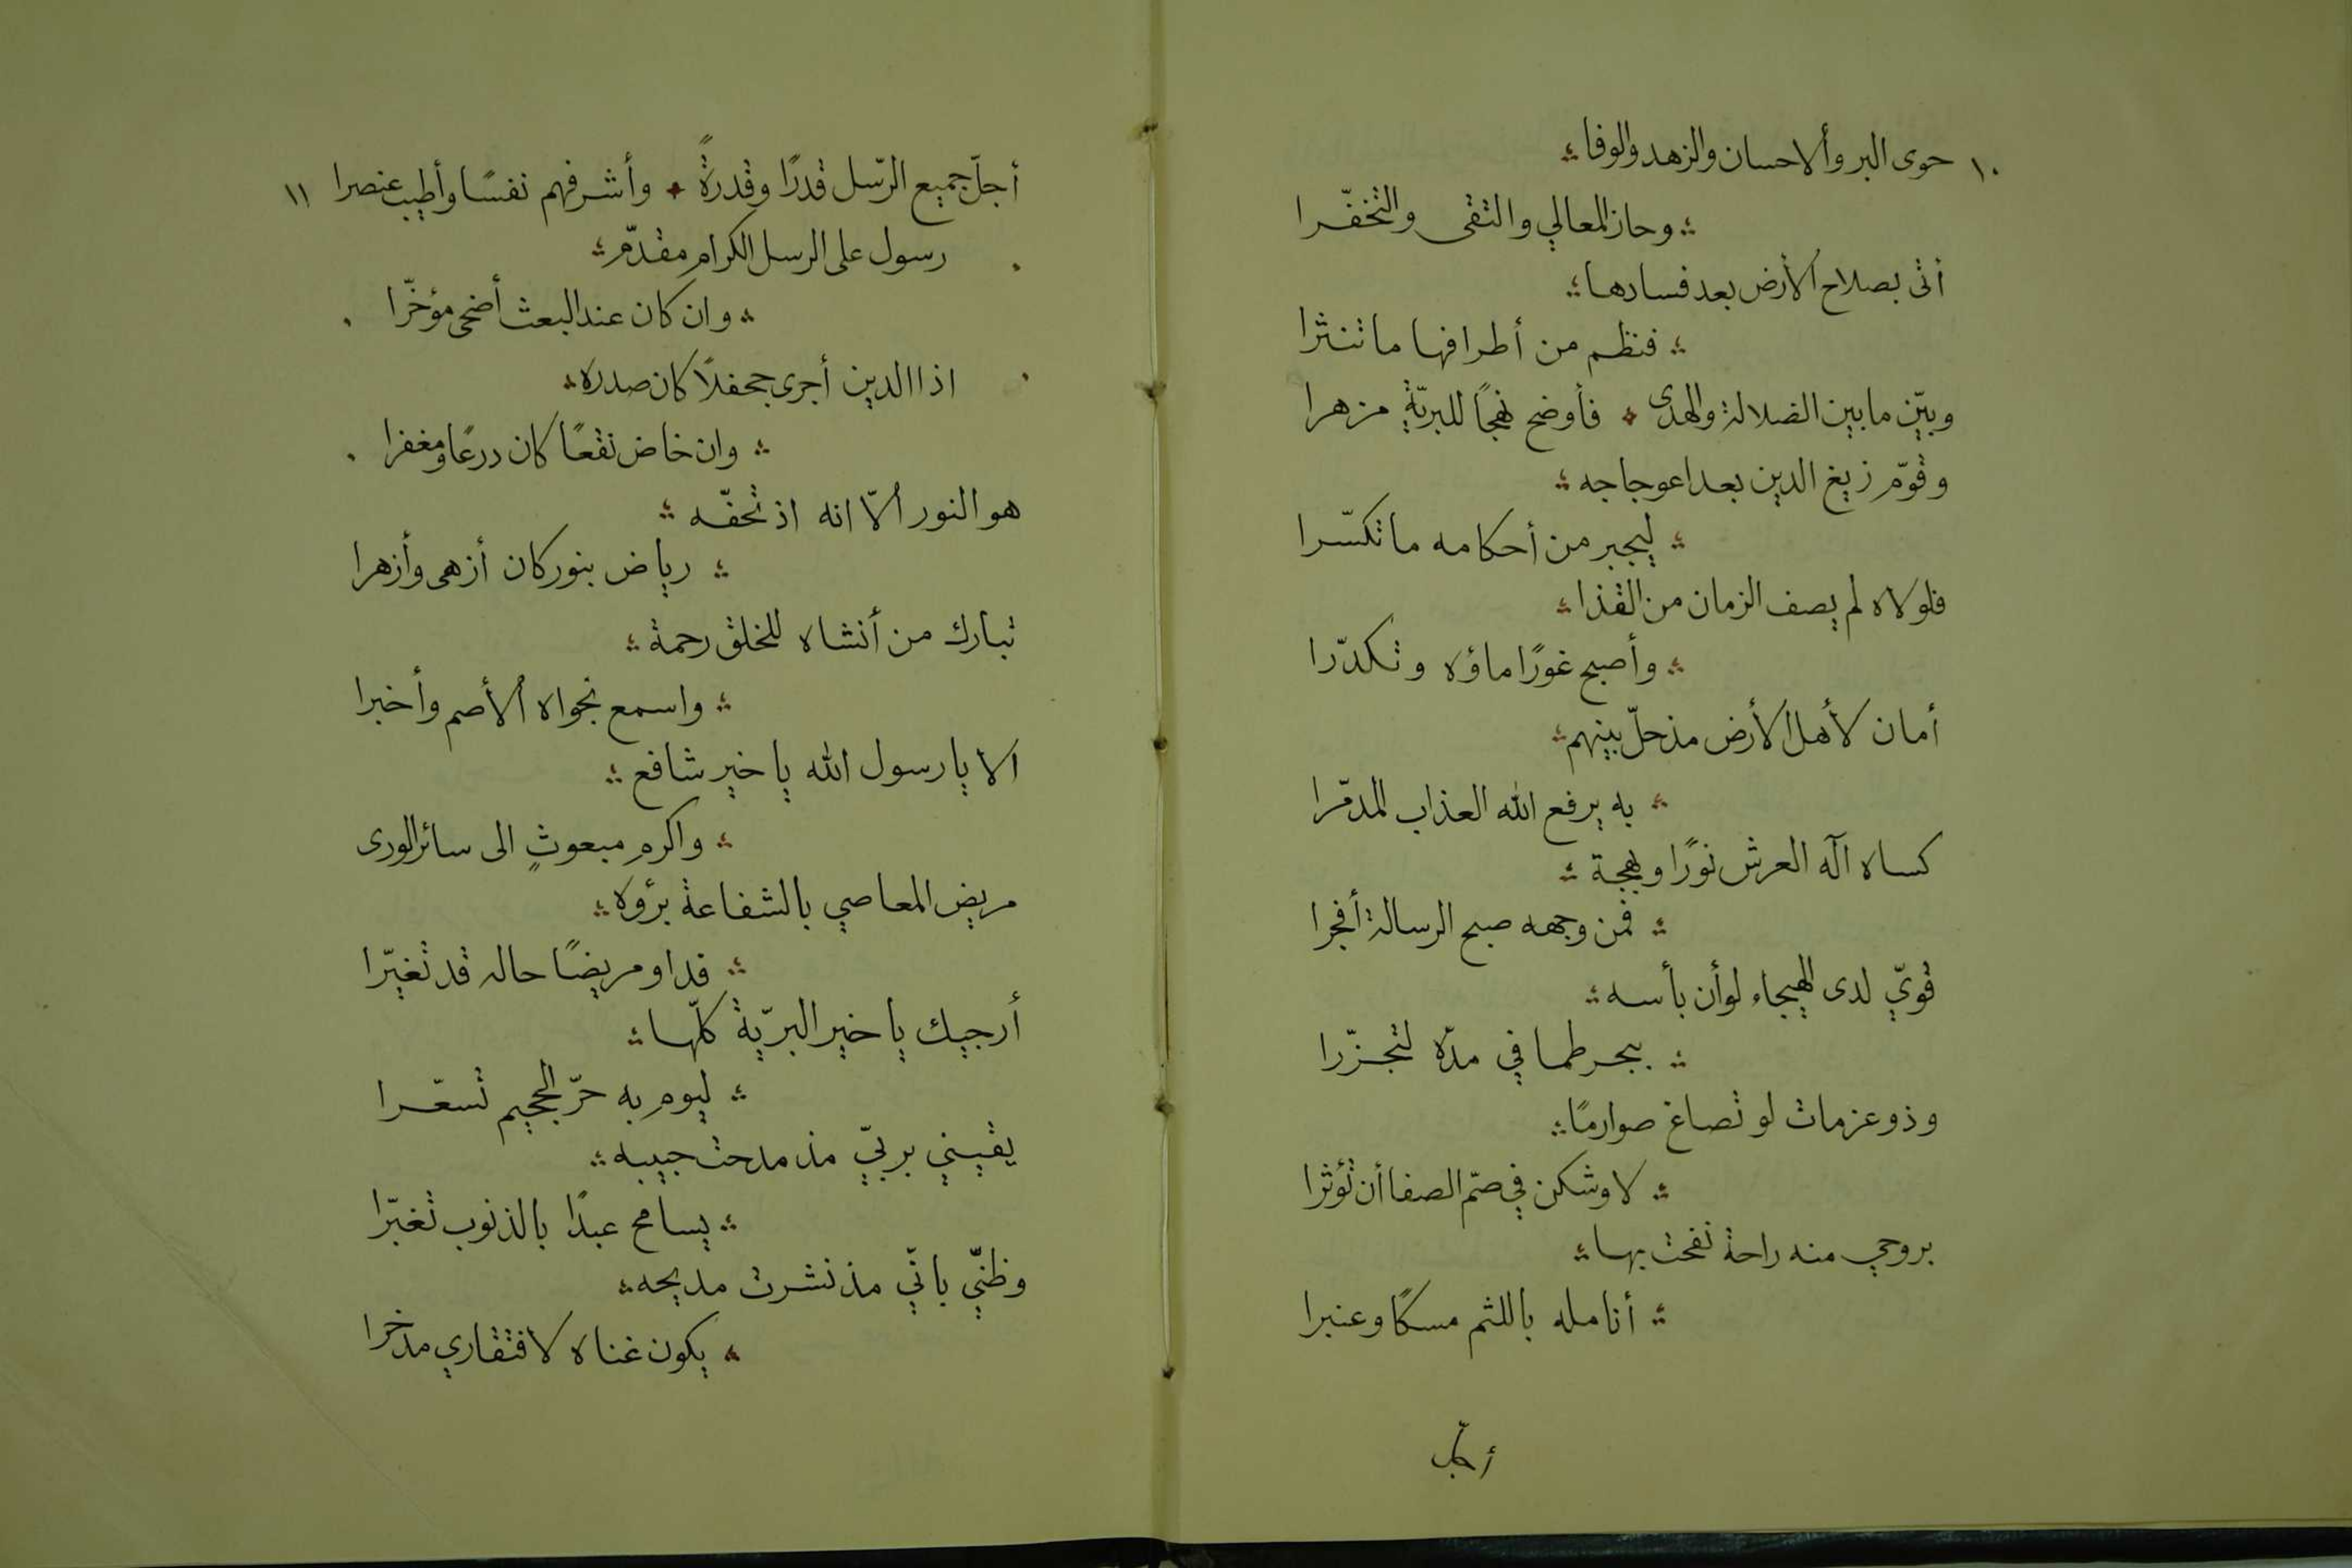 ١٠ حوى البر وألاحسان والزهد والوفا
وحاز المعالي والتقى والتخفّرا
أتى بصلاح الأرض بعد فسادها
فنظم من أطرافها ما تنثرا
وبيّن ما بين الضلالة والهدى فأوضح نهجًا للبريّة مزهرا
وقوّم زيغ الدين بعد اعوجاجه
ليجبر من أحكامه ما تكسّرا
فلولاه لم يصف الزمان من القذا
وأصبح غورًا ماؤه وتكدّرا
أمان لأهل الأرض مذ حلّ بينهم
به يرفع الله العذاب المدمّرا
كساه آله العرش نورًا وبهجة
فمن وجهه صبح الرسالة أفجرا
قويّ لدى الهيجاء لو أن بأسه
ببحر طما في مدّه لتجزّرا
وذو عزمات لو تصاغ صوارمًا
لاوشكن في صمّ الصفا أن تؤثرا
بروحي منه راحة نفحت بها
أنامله باللثم مسكًا وعنبرا
أجلّ
أجلّ جميع الرّسل قدرًا وقدرةً وأشرفهم نفسًا وأطيب عنصرا ١١
رسول على الرسل الكرام مقدّم
وان كان عند البعث أضحى مؤخّرا
اذا الدين أجرى جحفلًا كان صدره
وان خاض نقعًا كان درعًا ومغفرا
هو النور ألّا انه اذ تحفّه
رياض بنور كان أزهى وأزهرا
تبارك من أنشاه للخلق رحمة
واسمع نجواه ألأصم وأخبرا
الا يا رسول الله يا خير شافع
واكرم مبعوثٍ الى سائر الورى
مريض المعاصي بالشفاعة برؤه
فداو مريضًا حاله قد تغيّرا
أرجيك يا خير البريّة كلّها
ليوم به حرّ الجحيم تسعّرا
يقيني بربيّ مذ مدحت حبيبه
يسامح عبدًا بالذنوب تغبّرا
وظنيّ بانّي مذ نشرت مديحه
يكون غناه لافتقاري مدخرا